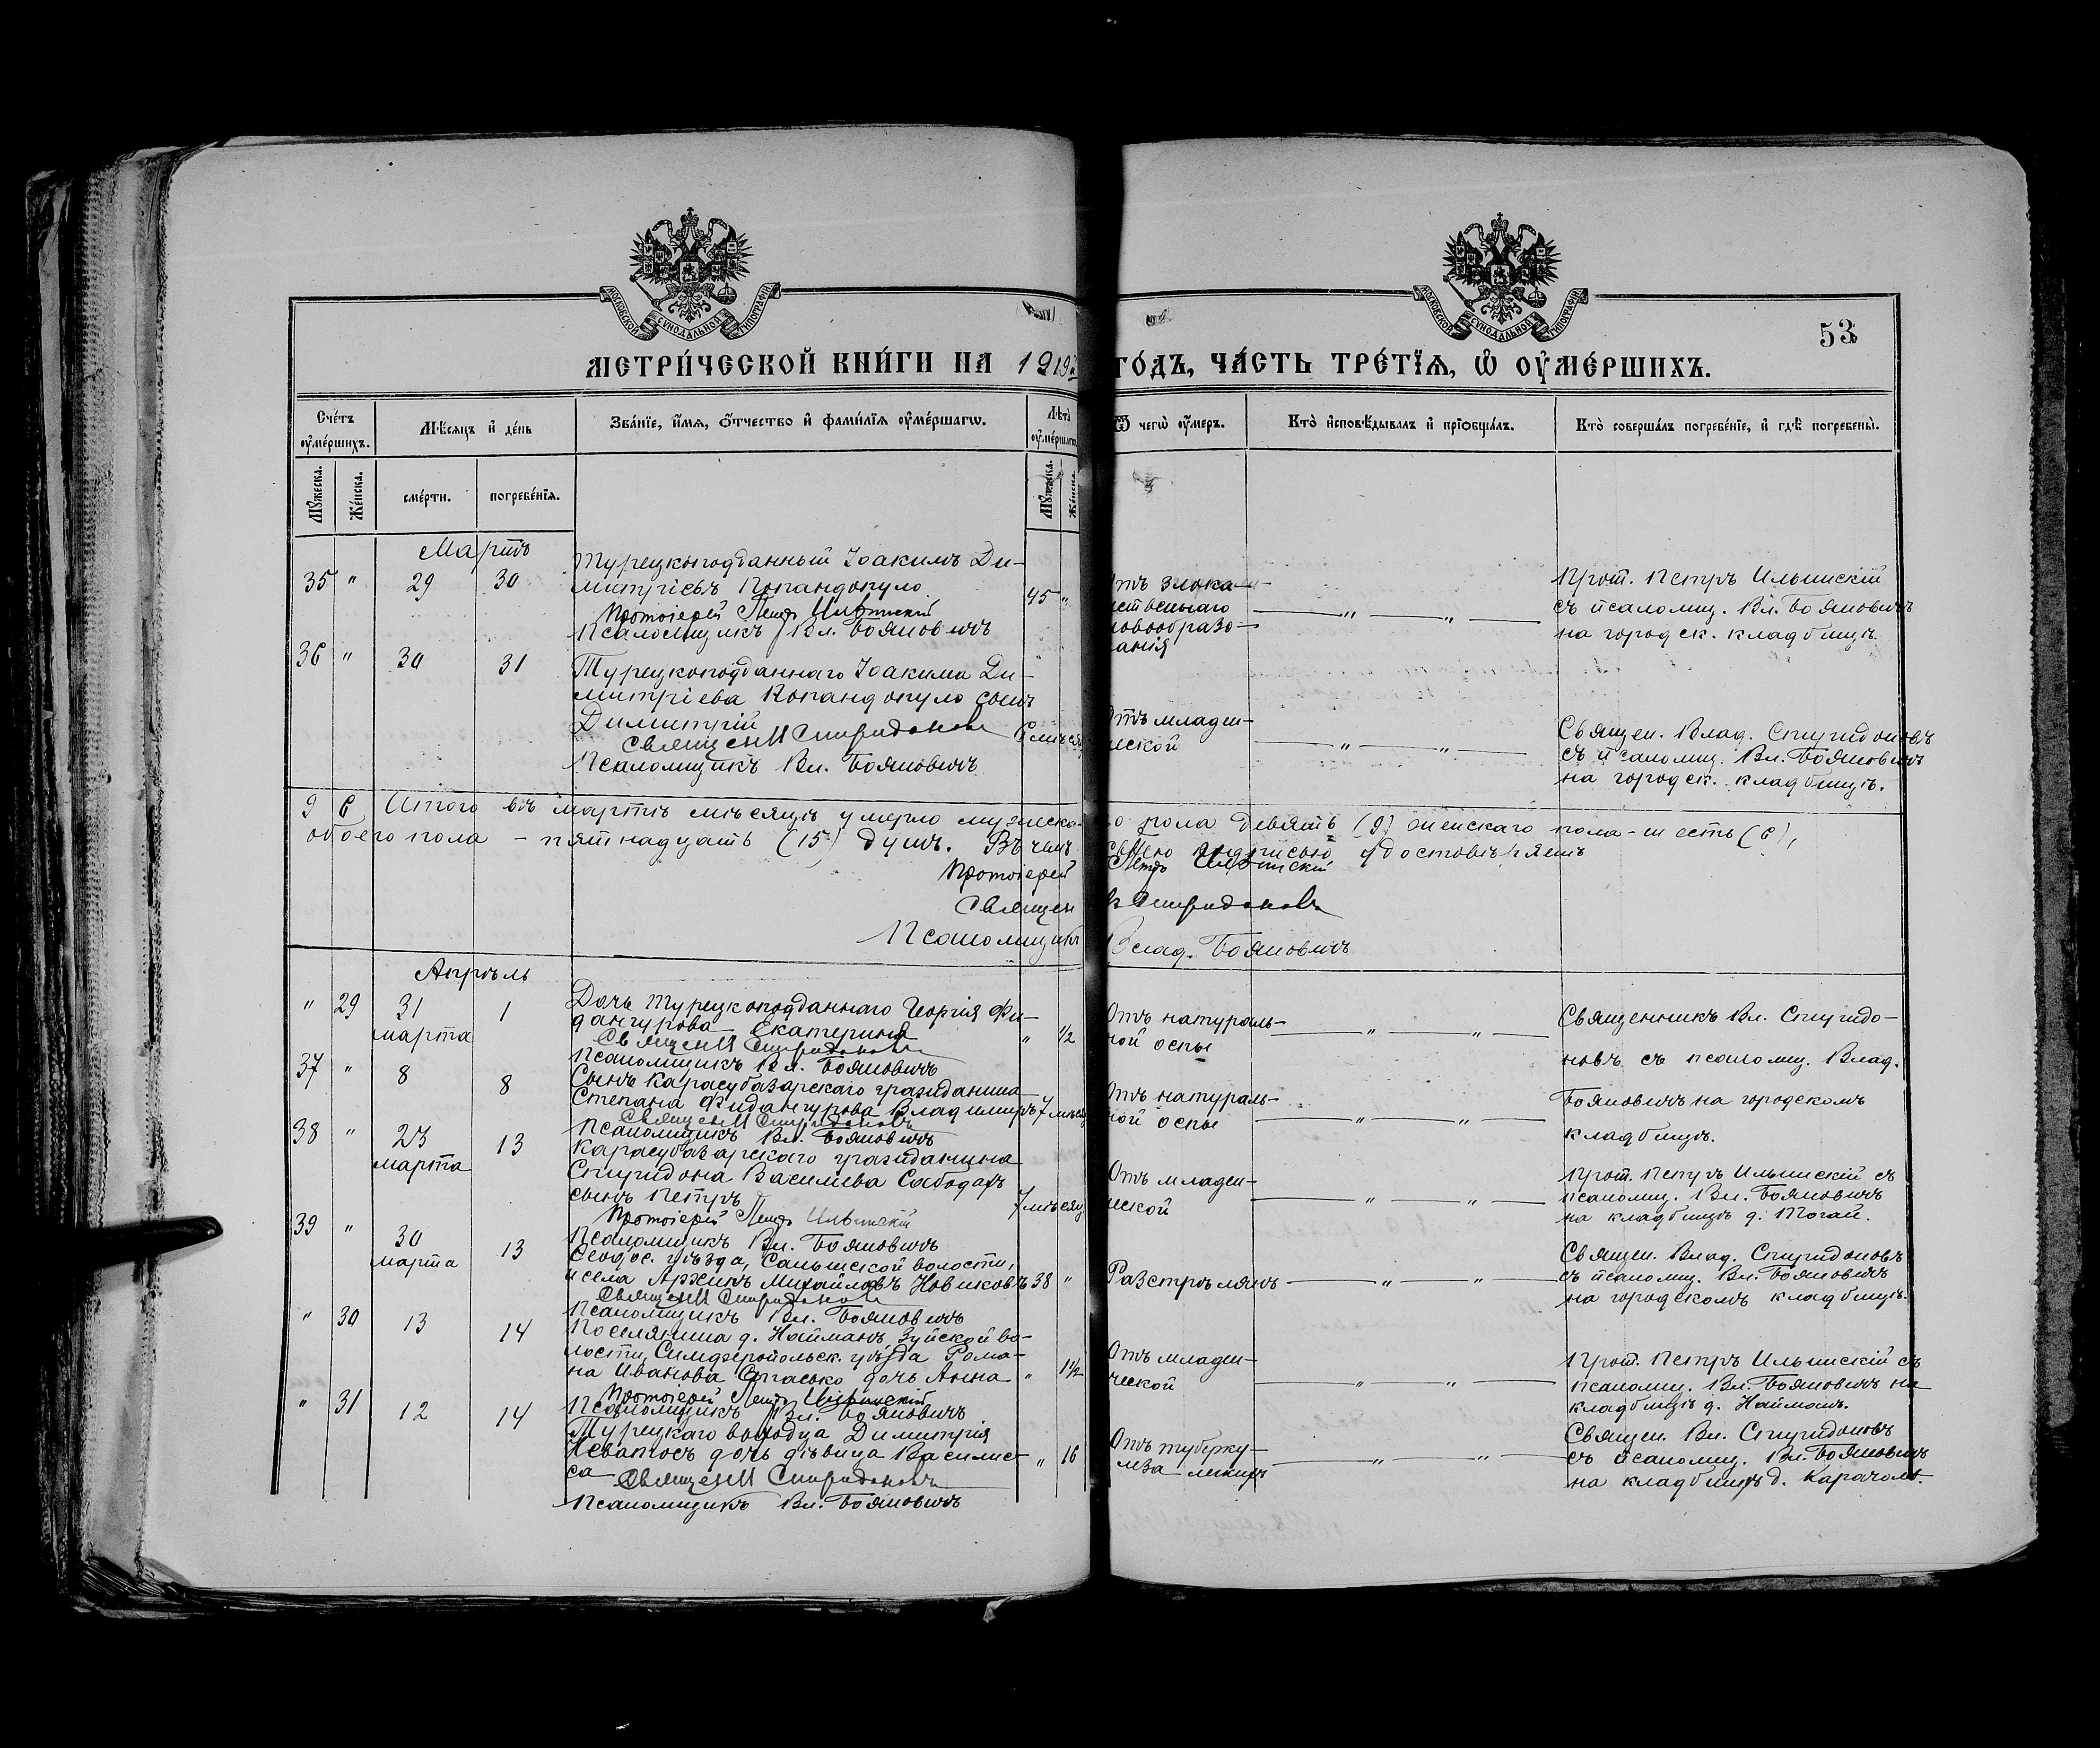 МОСКОВСКОЙ СѴНОДАЛЬНОЙ ТИПОГРАФІИ
МОСКОВСКОЙ СѴНОДАЛЬНОЙ ТИПОГРАФІИ
53
МЕТРИ́ЧЕСКОЙ КНИ́ГИ НА 1919
ГО́ДЪ, ЧА́СТЬ ТРЕ́ТЇѦ, Ѡ҆ ОУ҆МЕ́РШИХЪ.
Сче́тъ оу҆ме́ршихъ.
Мѣ́сяцъ и҆ де́нь
Зва́нїе, и҆́мѧ, ѻ҆́тчество и҆ фами́лїѧ оу҆ме́ршагѡ.
Лѣта̀ оу҆ме́ршагѡ
Ѿ чегѡ̀ оу҆́меръ.
Кто̀ и҆сповѣ́дывалъ и҆ прїѡбща́лъ.
Кто̀ соверша́лъ погребе́нїе, и҆ гдѣ̀ погребены̀.
Мꙋ́жеска.
Же́нска.
сме́рти.
погребе́нїѧ.
Мꙋ́жеска.
Же́нска.
Мартъ
35 " 29 30
Турецкоподданный Іоакимъ Ди-
митріевъ Попандопуло
Протоіерей Петръ Ильинскій
Псаломщикъ Вл. Бояновичъ
45 "
Отъ злока-
чественнаго
новообразо-
ванія
— " — " —
Прот. Петръ Ильинскій
съ псаломщ. Вл. Бояновичъ
на городск. кладбищѣ.
36 " 30 31
Турецкоподданнаго Іоакима Ди-
митріева Попандопуло сынъ
Димитрій
Священ Спиридоновъ
Псаломщикъ Вл. Бояновичъ
6 мѣсяц
Отъ младен-
ческой
— " — " —
Священ. Влад. Спиридоновъ
съ псаломщ. Вл. Бояновичъ
на городск. кладбищѣ.
9 6 Итого въ мартѣ мѣсяцѣ умерло мужска-
го пола девять (9) женскаго пола - шесть (6),
обоего пола - пятнадцать (15) душъ. Въ чемъ
подписью удостовѣряемъ
Протоіерей Петръ Ильинскій
Священ В Спиридоновъ
Псаломщикъ Влад. Бояновичъ
Апрѣль
" 29 31 марта 1
Дочь турецкоподданнаго Георгія Фи-
дангурова Екатерина
Священ Спиридоновъ
Псаломщикъ Вл. Бояновичъ
" 1/2
Отъ натураль-
ной оспы
— " — " —
Священникъ Вл. Спиридо-
новъ съ псаломщ. Влад.
37 " 8 8
Сынъ Карасубазарскаго гражданина
Степана Фидангурова Владимиръ
Священ Спиридоновъ
Псаломщикъ Вл. Бояновичъ
7 мѣсяц
Отъ натураль-
ной оспы
— " — " —
Бояновичъ на городскомъ
кладбищѣ.
38 " 23 марта 13
Карасубазарскаго гражданина
Спиридона Василиева Сабодаръ
сынъ Петръ
Протоіерей Петръ Ильинскій
Псаломщикъ Вл. Бояновичъ
7 мѣсяц
Отъ младен-
ческой
— " — " —
Прот. Петръ Ильинскій съ
псаломщ. Вл. Бояновичъ
на кладбищѣ д. Ногай.
39 " 30 марта 13
Ѳеодос. уѣзда, Салынской волости,
села Михайловъ Новиковъ
Священ Спиридонов
Псаломщикъ Вл. Бояновичъ
38 "
Разстрѣлянъ
— " — " —
Священ. Влад. Спиридоновъ
съ псаломщ. Вл. Бояновичъ
на городскомъ кладбищѣ.
" 30 13 14
Поселянина д. Найманъ, Зуйской во-
лости, Симферопольск. уѣзда Рома-
на Иванова Спасько дочь Анна
Протоіерей Петръ Ильинскій
Псаломщикъ Вл. Бояновичъ
" 1 1/2
Отъ младен-
ческой
— " — " —
Прот. Петръ Ильинскій съ
псаломщ. Вл. Бояновичъ на
кладбищѣ д. Найманъ.
" 31 12 14
Турецкаго Димитрія
дочь дѣвица Василис-
са
Священ Спиридоновъ
Псаломщикъ Вл. Бояновичъ
" 16
Отъ туберку-
леза легкихъ
— " — " —
Священ. Вл. Спиридоновъ
съ псаломщ. Вл. Бояновичъ
на кладбищѣ д. Карачолъ.